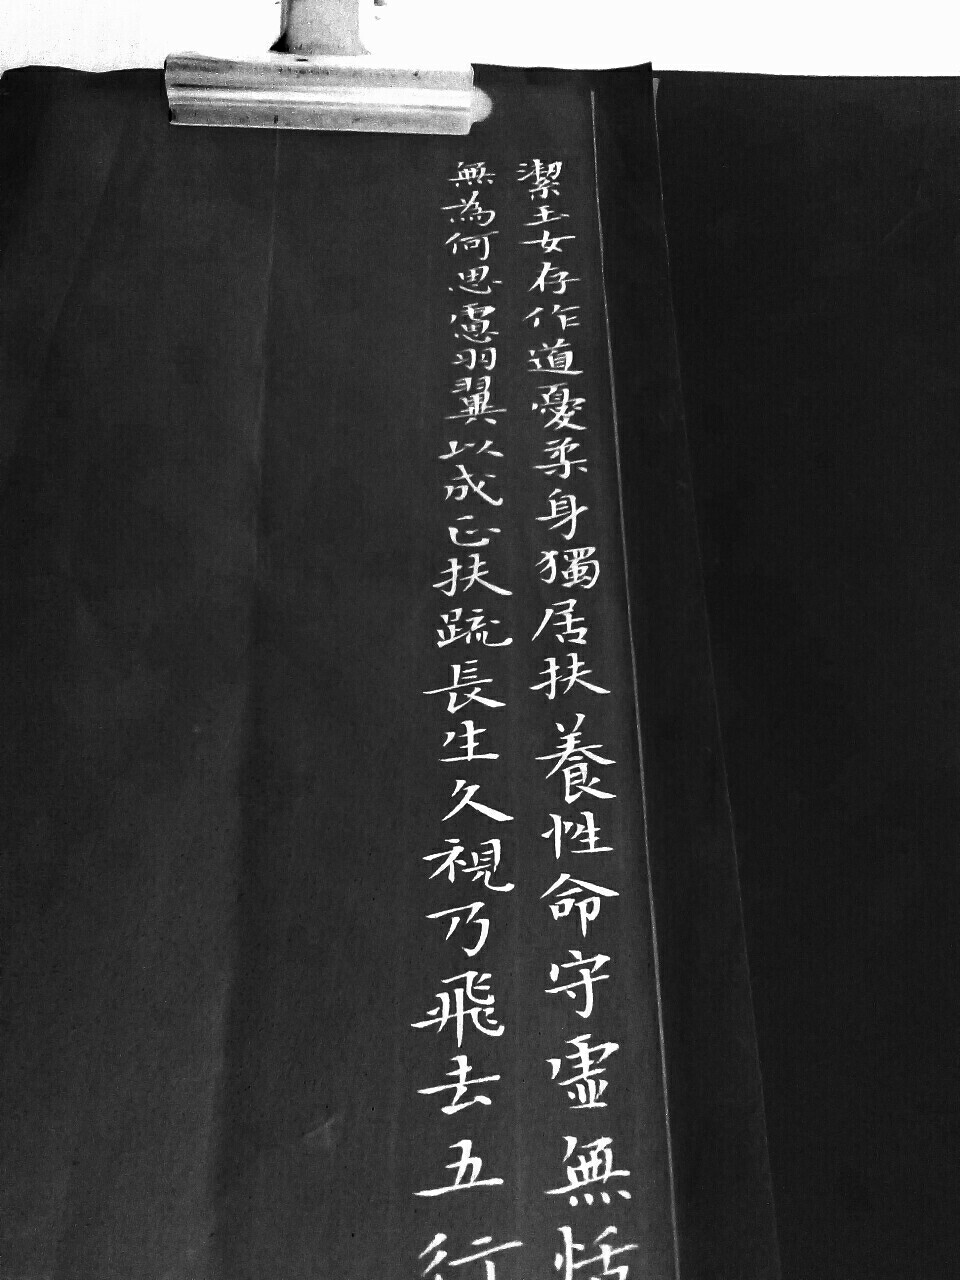 潔玉女存作道憂柔身獨居扶養性命守虛無恬
無為何思慮羽翼以成正扶疏長生久視乃飛去五行